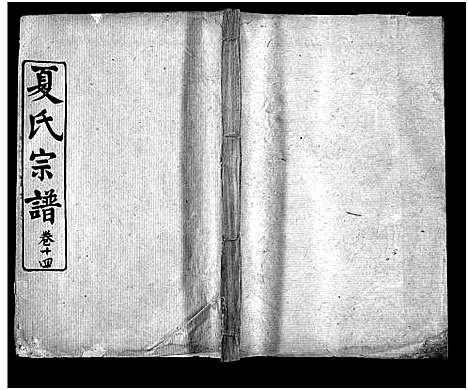 夏氏宗譜
卷十四